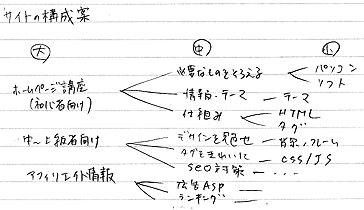 サイトの構成案
大 中 小
必要なものをそろえる パソコン
ソフト
ホームページ講座
(初心者向け)
情報・テーマ テーマ
仕組み HTML
タグ
中〜上級者向け
デザインを 背景、フレーム
タグをきれいに CSS/JS
SEO対策 ・・・
アフィリエイト情報
広告ASP
ランキング